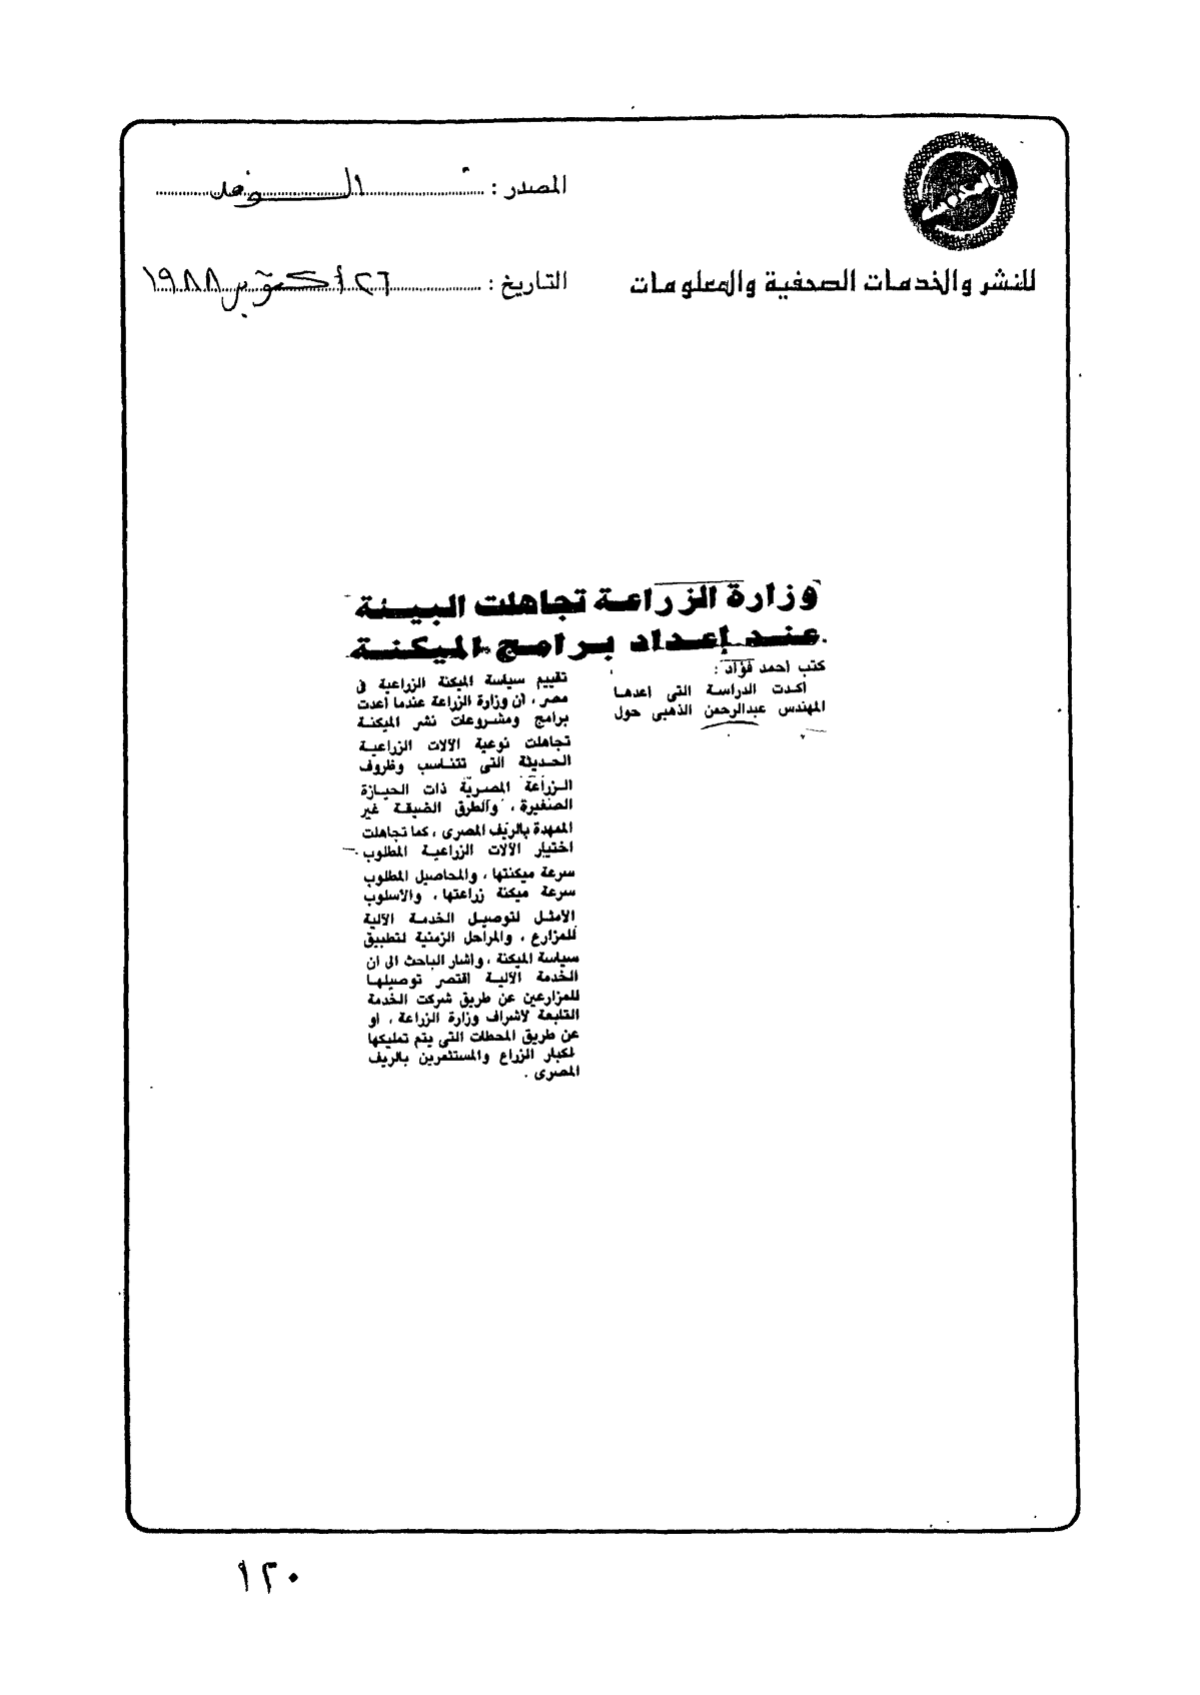 المصدر : الوفد
للنشر والخدمات الصحفية والمعلومات
التاريخ : ٢٦ أكتوبر ١٩٨٨
وزارة الزراعة تجاهلت البيئة
عند إعداد برامج الميكنة
كتب احمد فؤاد :
أكدت الدراسة التى اعدها
المهندس عبدالرحمن الذهبى حول
تقييم سياسة الميكنة الزراعية فى
مصر ، ان وزارة الزراعة عندما أعدت
برامج ومشروعات نشر الميكنة
تجاهلت نوعية الآلات الزراعية
الحديثة التى تتناسب وظروف
الزراعة المصرية ذات الحيازة
الصغيرة ، والطرق الضيقة غير
الممهدة بالريف المصرى ، كما تجاهلت
اختيار الآلات الزراعية المطلوب
سرعة ميكنتها ، والمحاصيل المطلوب
سرعة ميكنة زراعتها ، والاسلوب
الأمثل لتوصيل الخدمة الآلية
للمزارع ، والمراحل الزمنية لتطبيق
سياسة الميكنة ، واشار الباحث الى ان
الخدمة الآلية اقتصر توصيلها
للمزارعين عن طريق شركت الخدمة
التابعة لاشراف وزارة الزراعة ، او
عن طريق المحطات التى يتم تمليكها
لكبار الزراع والمستثمرين بالريف
المصرى .
١٢٠